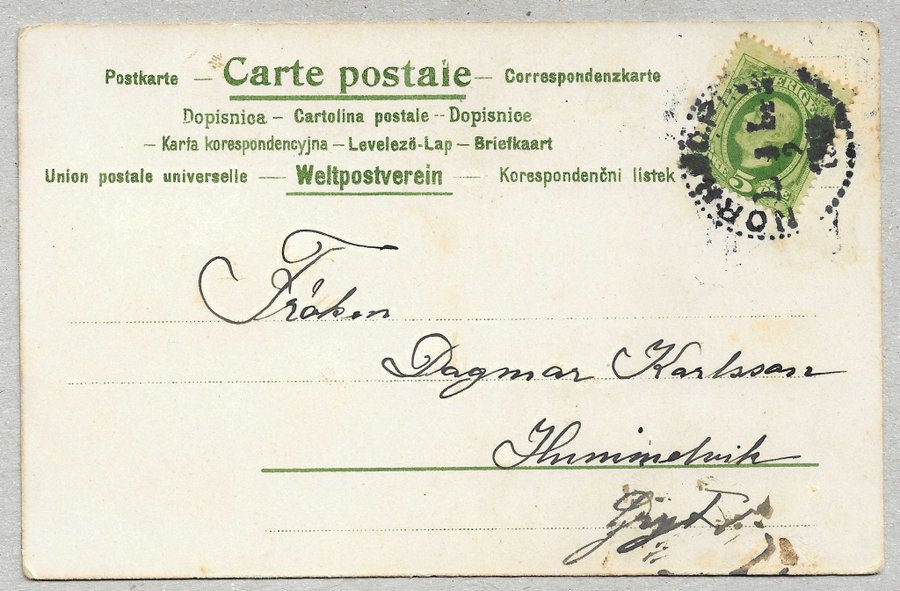 Postkarte — Carte postale — Correspondenzkarte
Dopisnica — Cartolina postale -- Dopisnice
— Karta korespondencyjna — Levelező-Lap — Briefkaart
Union postale universelle — Weltpostverein — Korespondenčni lístek
SVERIGE
5
NORR
Fröken
Dagmar Karlsson
Hummelvik
Gryt